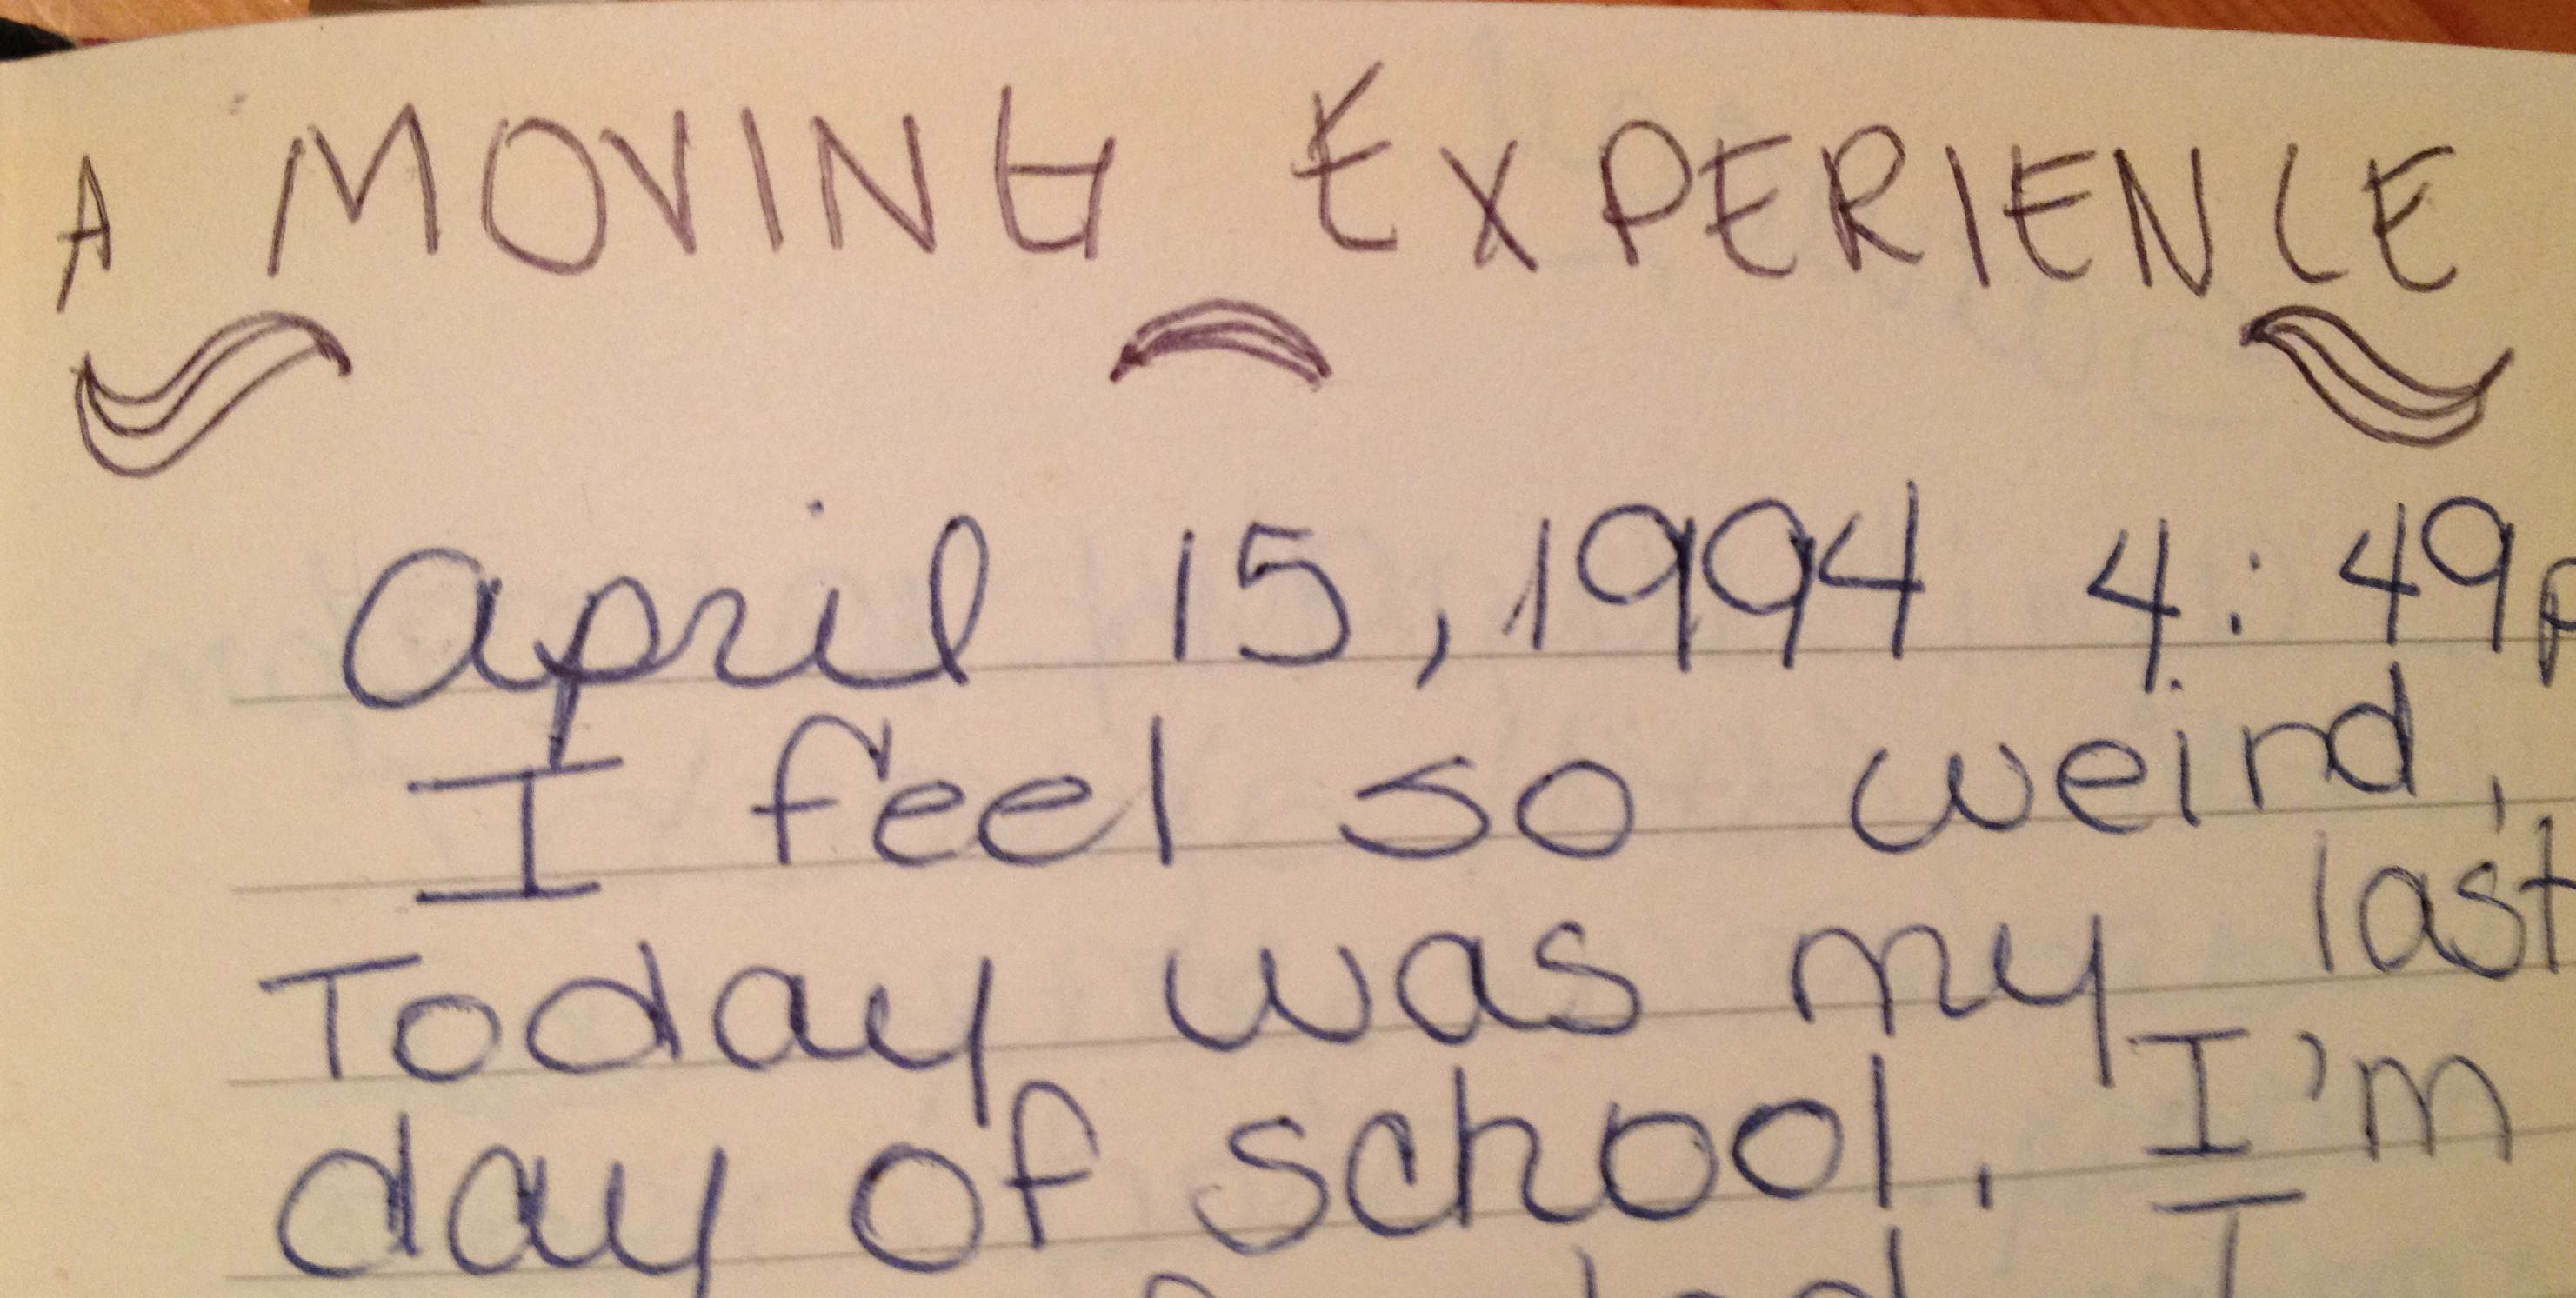 A MOVING EXPERIENCE
April 15, 1994 4:49p
I feel so weird.
Today was my last
day of school. I'm